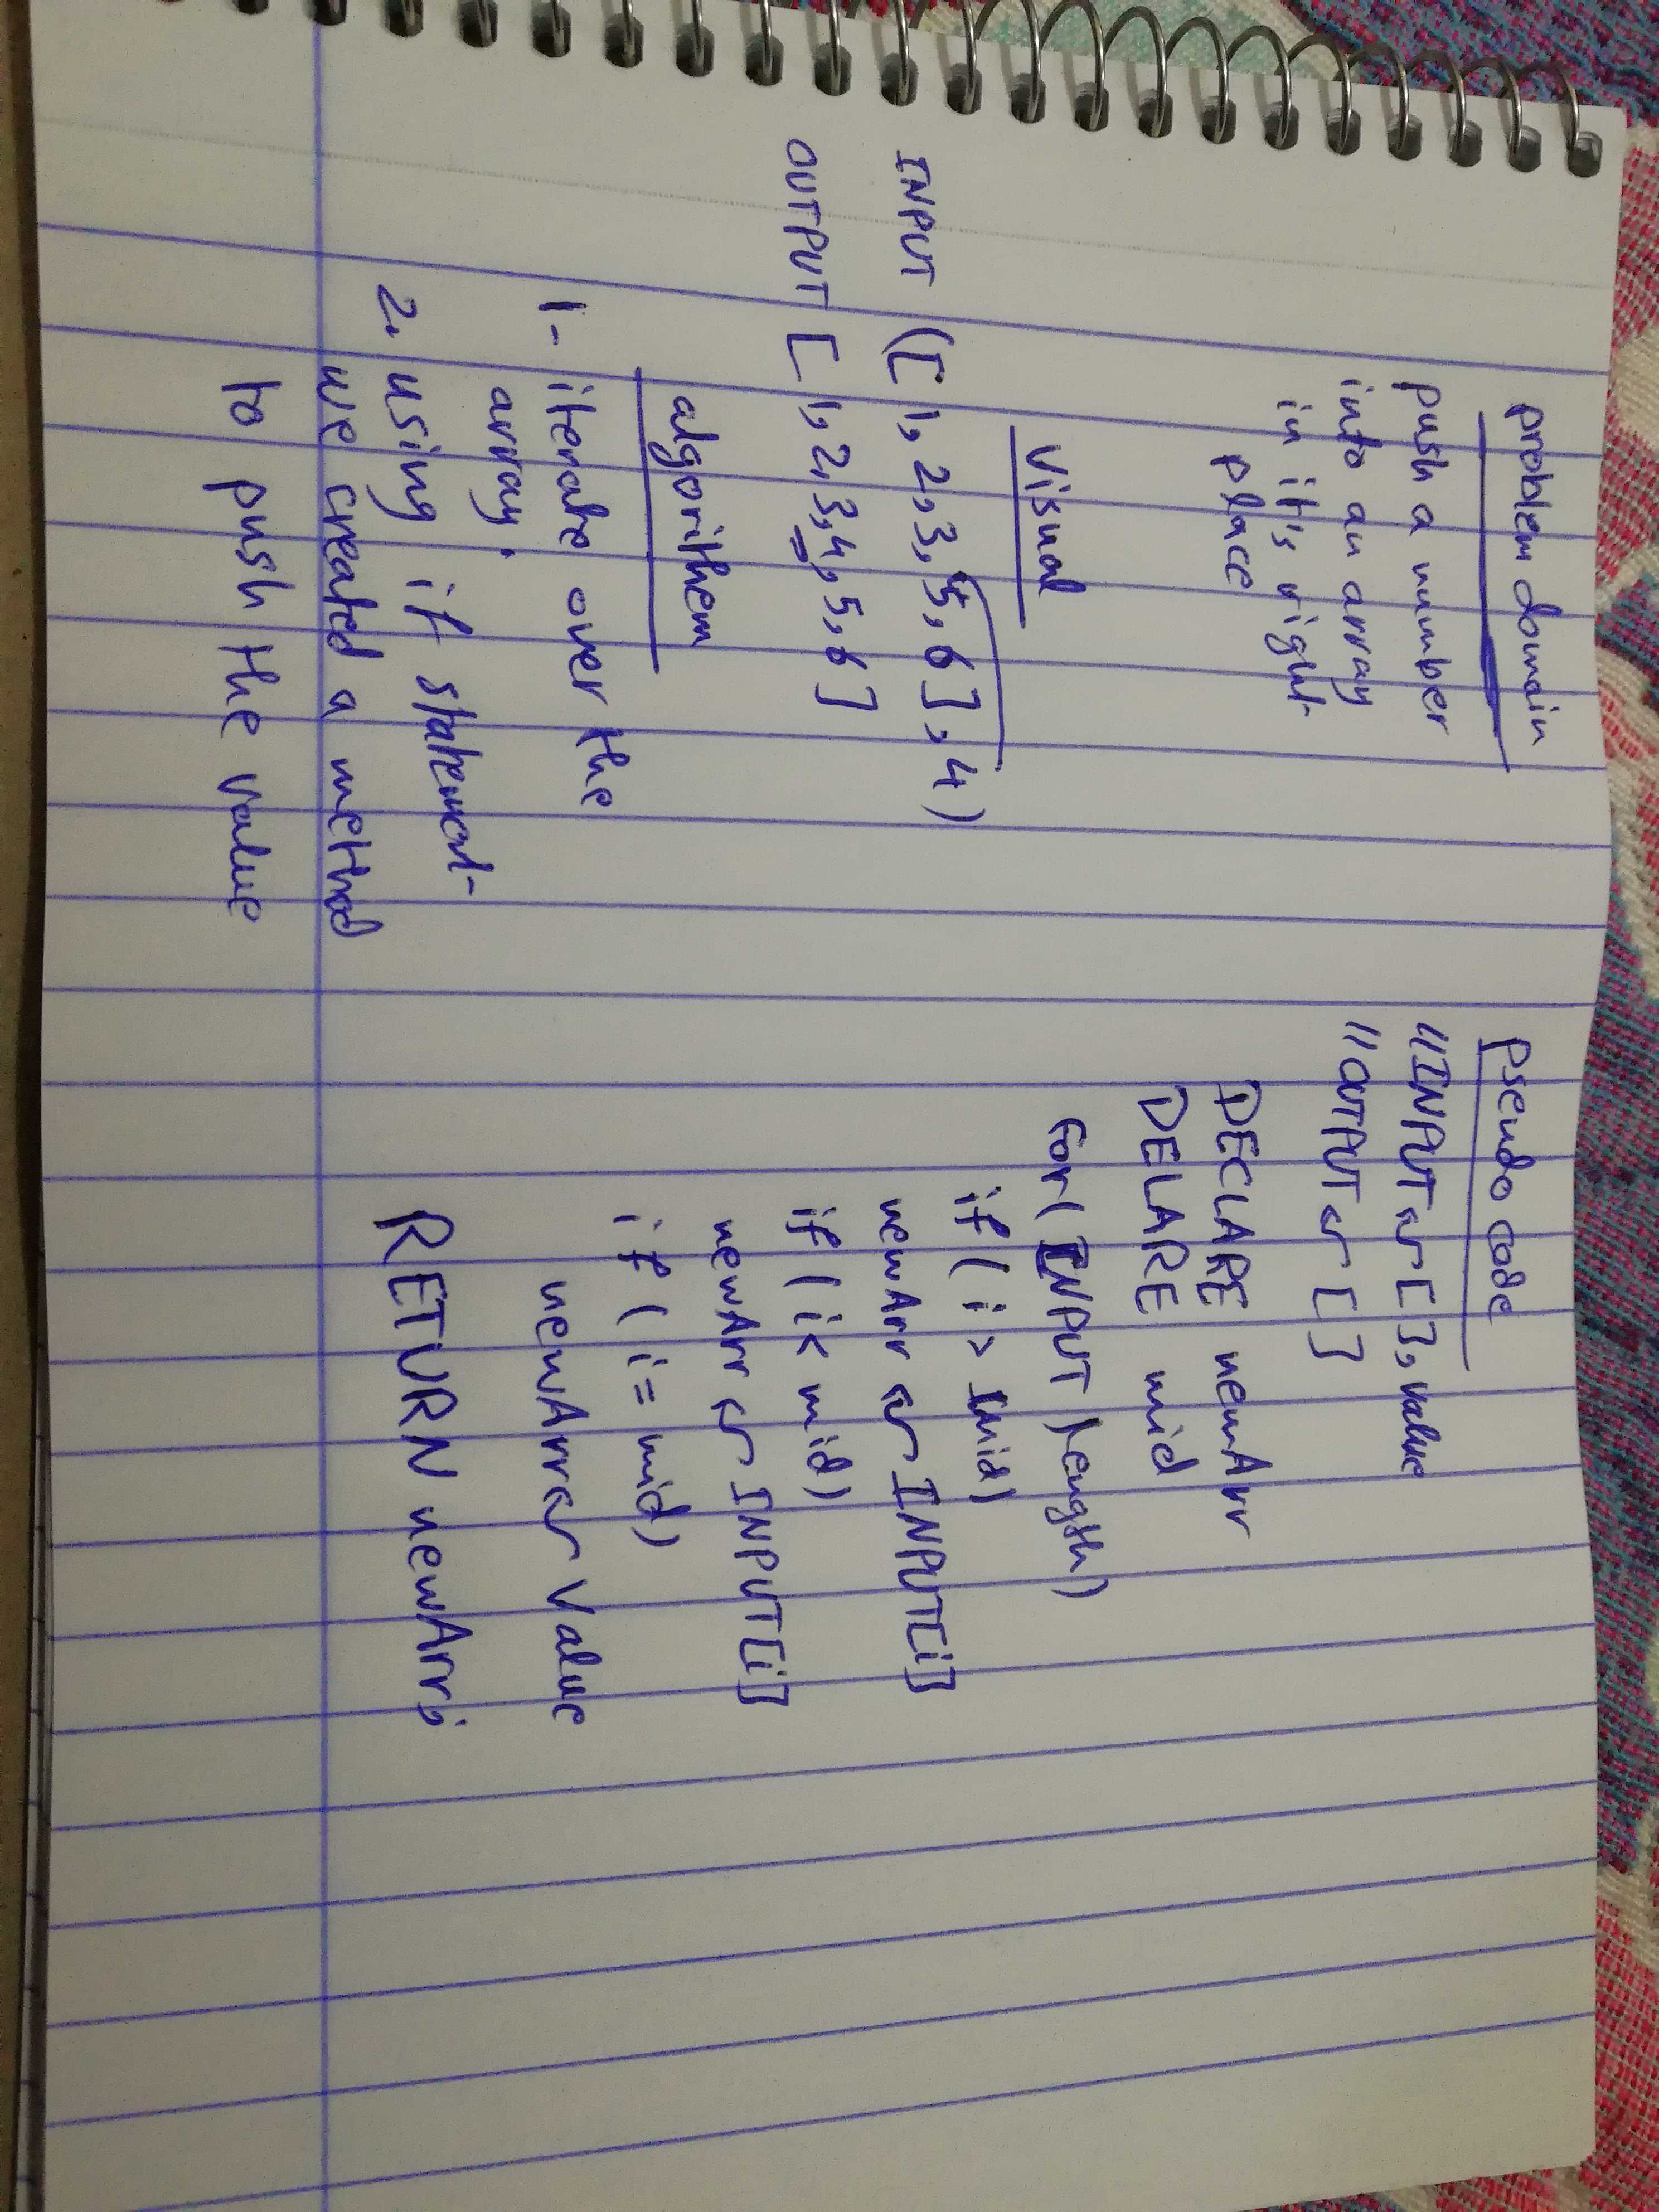 problem domain
push a number
into an array
in it's right
place
Visual
INPUT ([1,2,3,5,6],4)
OUTPUT [1,2,3,4,5,6]
algorithem
1- iterate over the
array.
2. using if statement
we created a method
to push the value
Pseudo code
//INPUT ← [], value
//OUTPUT ← []
DECLARE newArr
DELARE mid
for( INPUT length)
if ( i > mid)
newArr ← INPUT[i]
if ( i < mid)
newArr ← INPUT[i]
if ( i = mid)
newArr ← value
RETURN newArr;